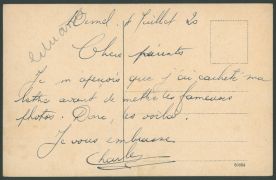 Juillet 20
Chers parents
Je m'aperçois que j'ai cacheté ma
lettre avant de mettre les fameuses
photos. Donc, les voila.
Je vous embrasse
Charles